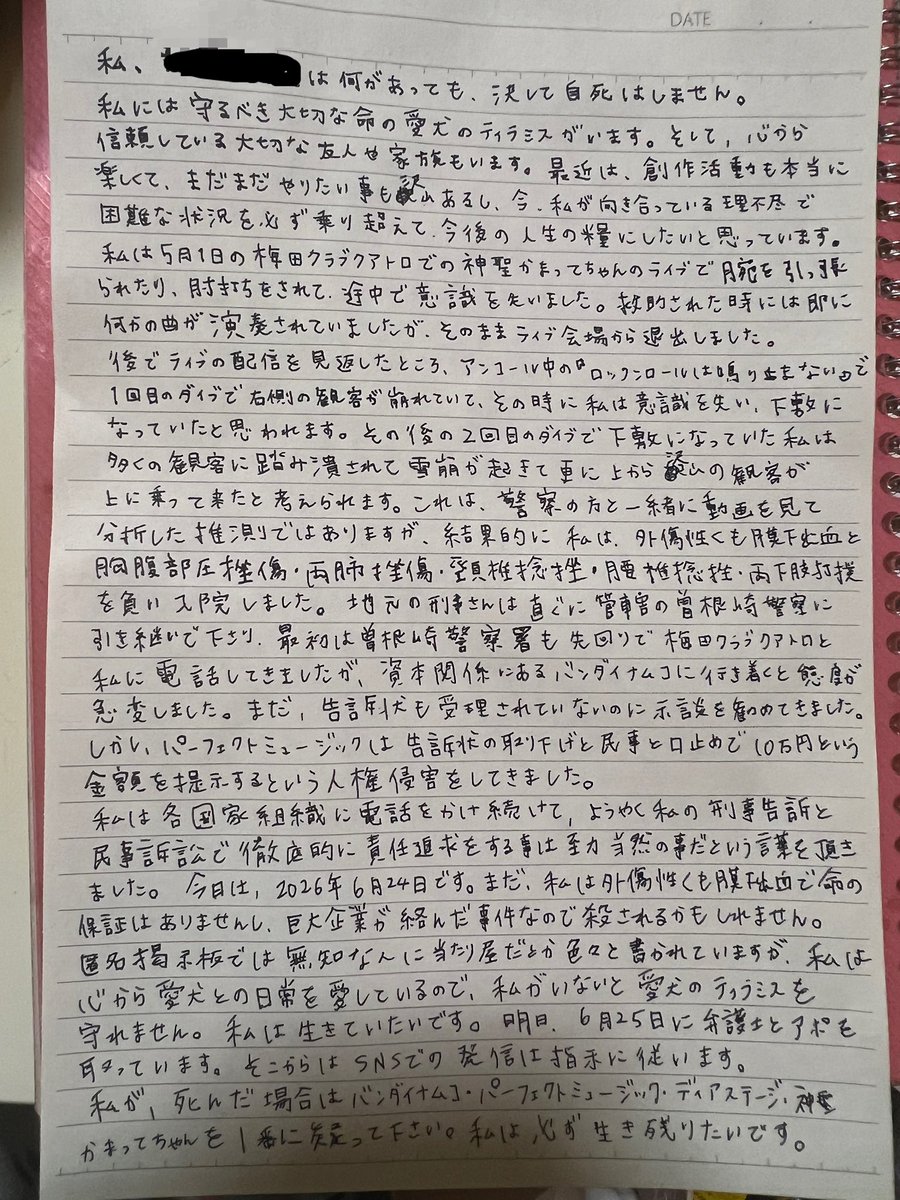 DATE . .
私、
は何があっても、決して自死はしません。
私には守るべき大切な命の愛犬のティラミスがいます。そして、心から
信頼している大切な友人や家族もいます。最近は、創作活動も本当に
楽しくて、まだまだやりたい事も沢山あるし、今、私が向き合っている理不尽で
困難な状況を必ず乗り超えて、今後の人生の糧にしたいと思っています。
私は5月1日の梅田クラブクアトロでの神聖かまってちゃんのライブで腕を引っ張
られたり、肘打ちをされて、途中で意識を失いました。救助された時には即に
何かの曲が演奏されていましたが、そのままライブ会場から退出しました。
後でライブの配信を見返したところ、アンコール中の『ロックンロールは鳴り止まない』で
1回目のダイブで右側の観客が崩れていて、その時に私は意識を失い、下敷に
なっていたと思われます。その後の2回目のダイブで下敷になっていた私は
多くの観客に踏み潰されて雪崩が起きて更に上から沢山の観客が
上に乗って来たと考えられます。これは、警察の方と一緒に動画を見て
分析した推測ではありますが、結果的に私は、外傷性くも膜下出血と
胸腹部圧挫傷・両肺挫傷・頸椎捻挫・腰椎捻挫・両下肢打撲
を負い入院しました。地元の刑事さんは直ぐに管轄の曽根崎警察に
引き継いで下さり、最初は曽根崎警察署も先回りで梅田クラブクアトロと
私に電話してきましたが、資本関係にあるバンダイナムコに行き着くと態度が
急変しました。まだ、告訴状も受理されていないのに示談を勧めてきました。
しかし、パーフェクトミュージックは告訴状の取り下げと民事と口止めで10万円という
金額を提示するという人権侵害をしてきました。
私は各国家組織に電話をかけ続けて、ようやく私の刑事告訴と
民事訴訟で徹底的に責任追求をする事は至力当然の事だという言葉を頂き
ました。今日は、2026年6月24日です。まだ、私は外傷性くも膜下出血で命の
保証はありませんし、巨大企業が絡んだ事件なので殺されるかもしれません。
匿名掲示板では無知な人に当たり屋だとか色々と書かれていますが、私は
心から愛犬との日常を愛しているので、私がいないと愛犬のティラミスを
守れません。私は生きていたいです。明日、6月25日に弁護士とアポを
取っています。そこからはSNSでの発信は指示に従います。
私が、死んだ場合はバンダイナムコ・パーフェクトミュージック・ディアステージ・神聖
かまってちゃんを1番に疑って下さい。私は必ず生き残りたいです。